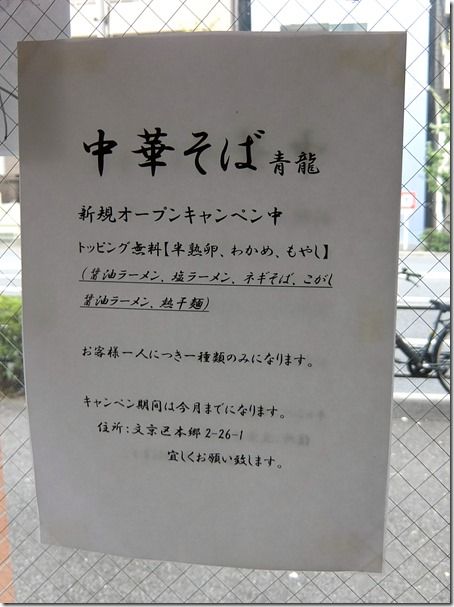 中華そば 青龍
新規オープンキャンペン中
トッピング無料【半熟卵、わかめ、もやし】
(醤油ラーメン、塩ラーメン、ネギそば、こがし
醤油ラーメン、热干麺)
お客様一人につき一種類のみになります。
キャンペン期間は今月までになります。
住所:文京区本郷 2-26-1
宜しくお願い致します。